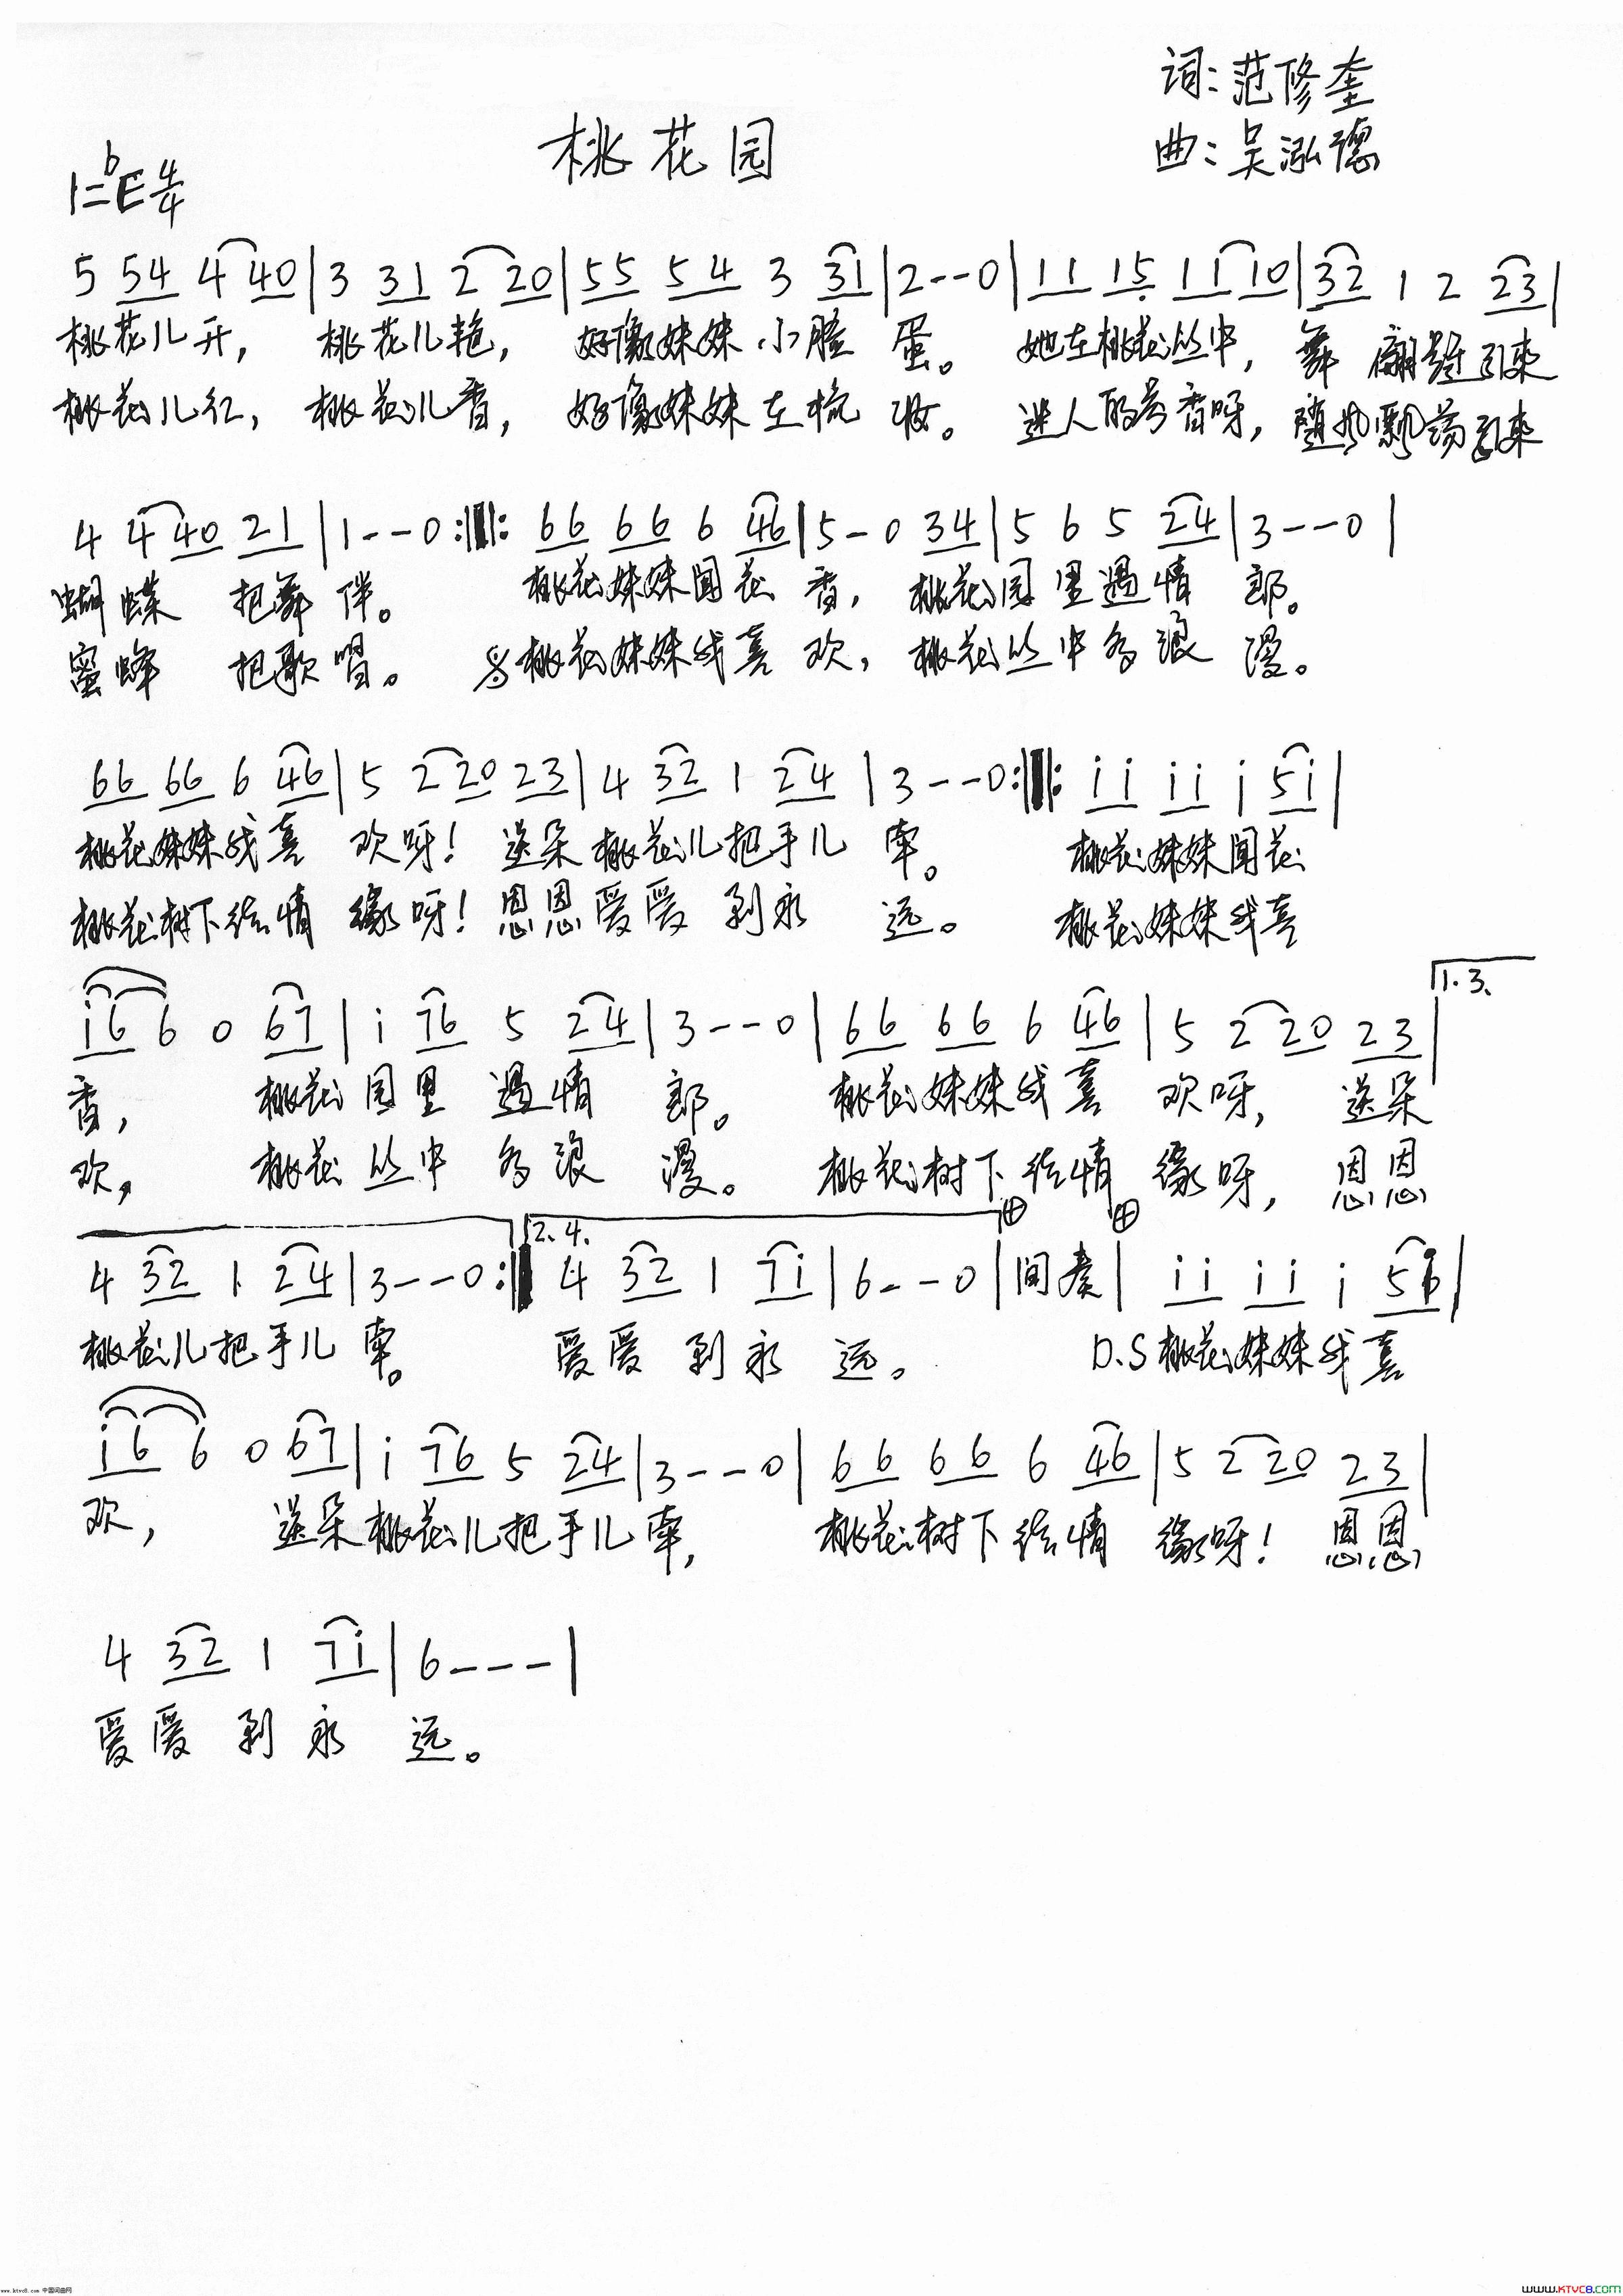 词:范修奎
桃花园
曲:吴泓德
1=bE 4/4
5 54 4 40|3 31 2 20|55 54 3 31|2--0|11 15 11 10|32 1 2 23|
桃花儿开, 桃花儿艳, 好像妹妹小脸蛋。 她在桃花丛中, 舞翩跹引来
桃花儿红, 桃花儿香, 好像妹妹在梳妆。 迷人的芳香呀, 随风飘荡引来
4 4 40 21|1--0:||: 66 66 6 46|5-0 34|5 6 5 24|3--0|
蝴蝶 把舞伴。 桃花妹妹闻花香, 桃花园里遇情郎。
蜜蜂 把歌唱。 桃花妹妹我喜欢, 桃花丛中多浪漫。
66 66 6 46|5 2 20 23|4 32 1 24|3--0:||: ii ii i 5i|
桃花妹妹我喜欢呀! 送朵桃花儿把手儿牵。 桃花妹妹闻花
桃花树下结情缘呀! 恩恩爱爱到永远。 桃花妹妹我喜
i6 6 0 67|i 76 5 24|3--0|66 66 6 46|5 2 20 23| 1. 3.
香, 桃花园里遇情郎。 桃花妹妹我喜欢呀, 送朵
欢, 桃花丛中多浪漫。 桃花树下结情缘呀, 恩恩
4 32 1 24|3--0:|| 2. 4. 4 32 1 7i|6--0|间奏| ii ii i 5i|
桃花儿把手儿牵。 爱爱到永远。 D.S桃花妹妹我喜
i6 6 0 67|i 76 5 24|3--0|66 66 6 46|5 2 20 23|
欢, 送朵桃花儿把手儿牵, 桃花树下结情缘呀! 恩恩
4 32 1 7i|6---|
爱爱到永远。
www.ktvc8.com 中国词曲网
www.KTVC8.com